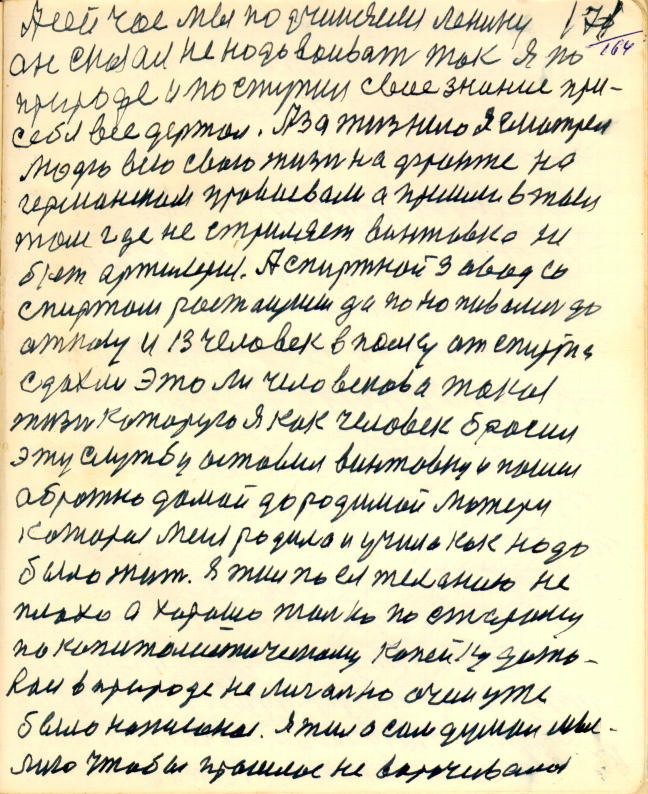 А сей час мы подчинялися Ленину 171
он сказал не надо воиват так я по 164
природе и поступил свое знание при-
себя все держал. А за жизнию я смотрел
людью всю свою жизн на фронте на
германском провоевали а пришли в
том где не стриляет винтовка ни
бьет артилерия. А спиртной завод со
спиртом ростащили да по напивалис до
отказу и 13 человек в полку от спирта
сдохли Это ли человекова такая
жизн катаруго я как человек бросил
эту службу оставил винтовку и пошол
обротно дамой до родимой матери
катора меня родила и учила как надо
было жит. Я жил по ея желанию не
плохо а хорошо толко по старому
по капиталистическому копейку дото-
вал в природе не легално о чем уже
было написано. Я жил а сам думал мыс-
лило чтобы прошлое не ворочивалос